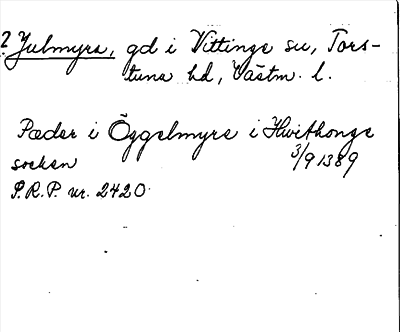 ? Julmyra, gd i Vittinge sn, Tors-
tuna hd, Västm. l.
Pæder i Öggelmyre i Hwithunge
socken 3/9 1389
S.R.P. nr. 2420